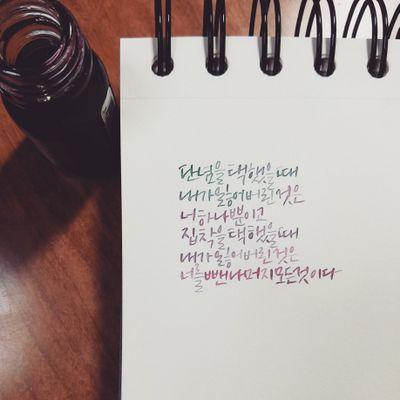 단념을 택했을 때
내가 잃어버린 것은
너 하나뿐이고
집착을 택했을 때
내가 잃어버린 것은
너를 뺀 나머지 모든 것이다